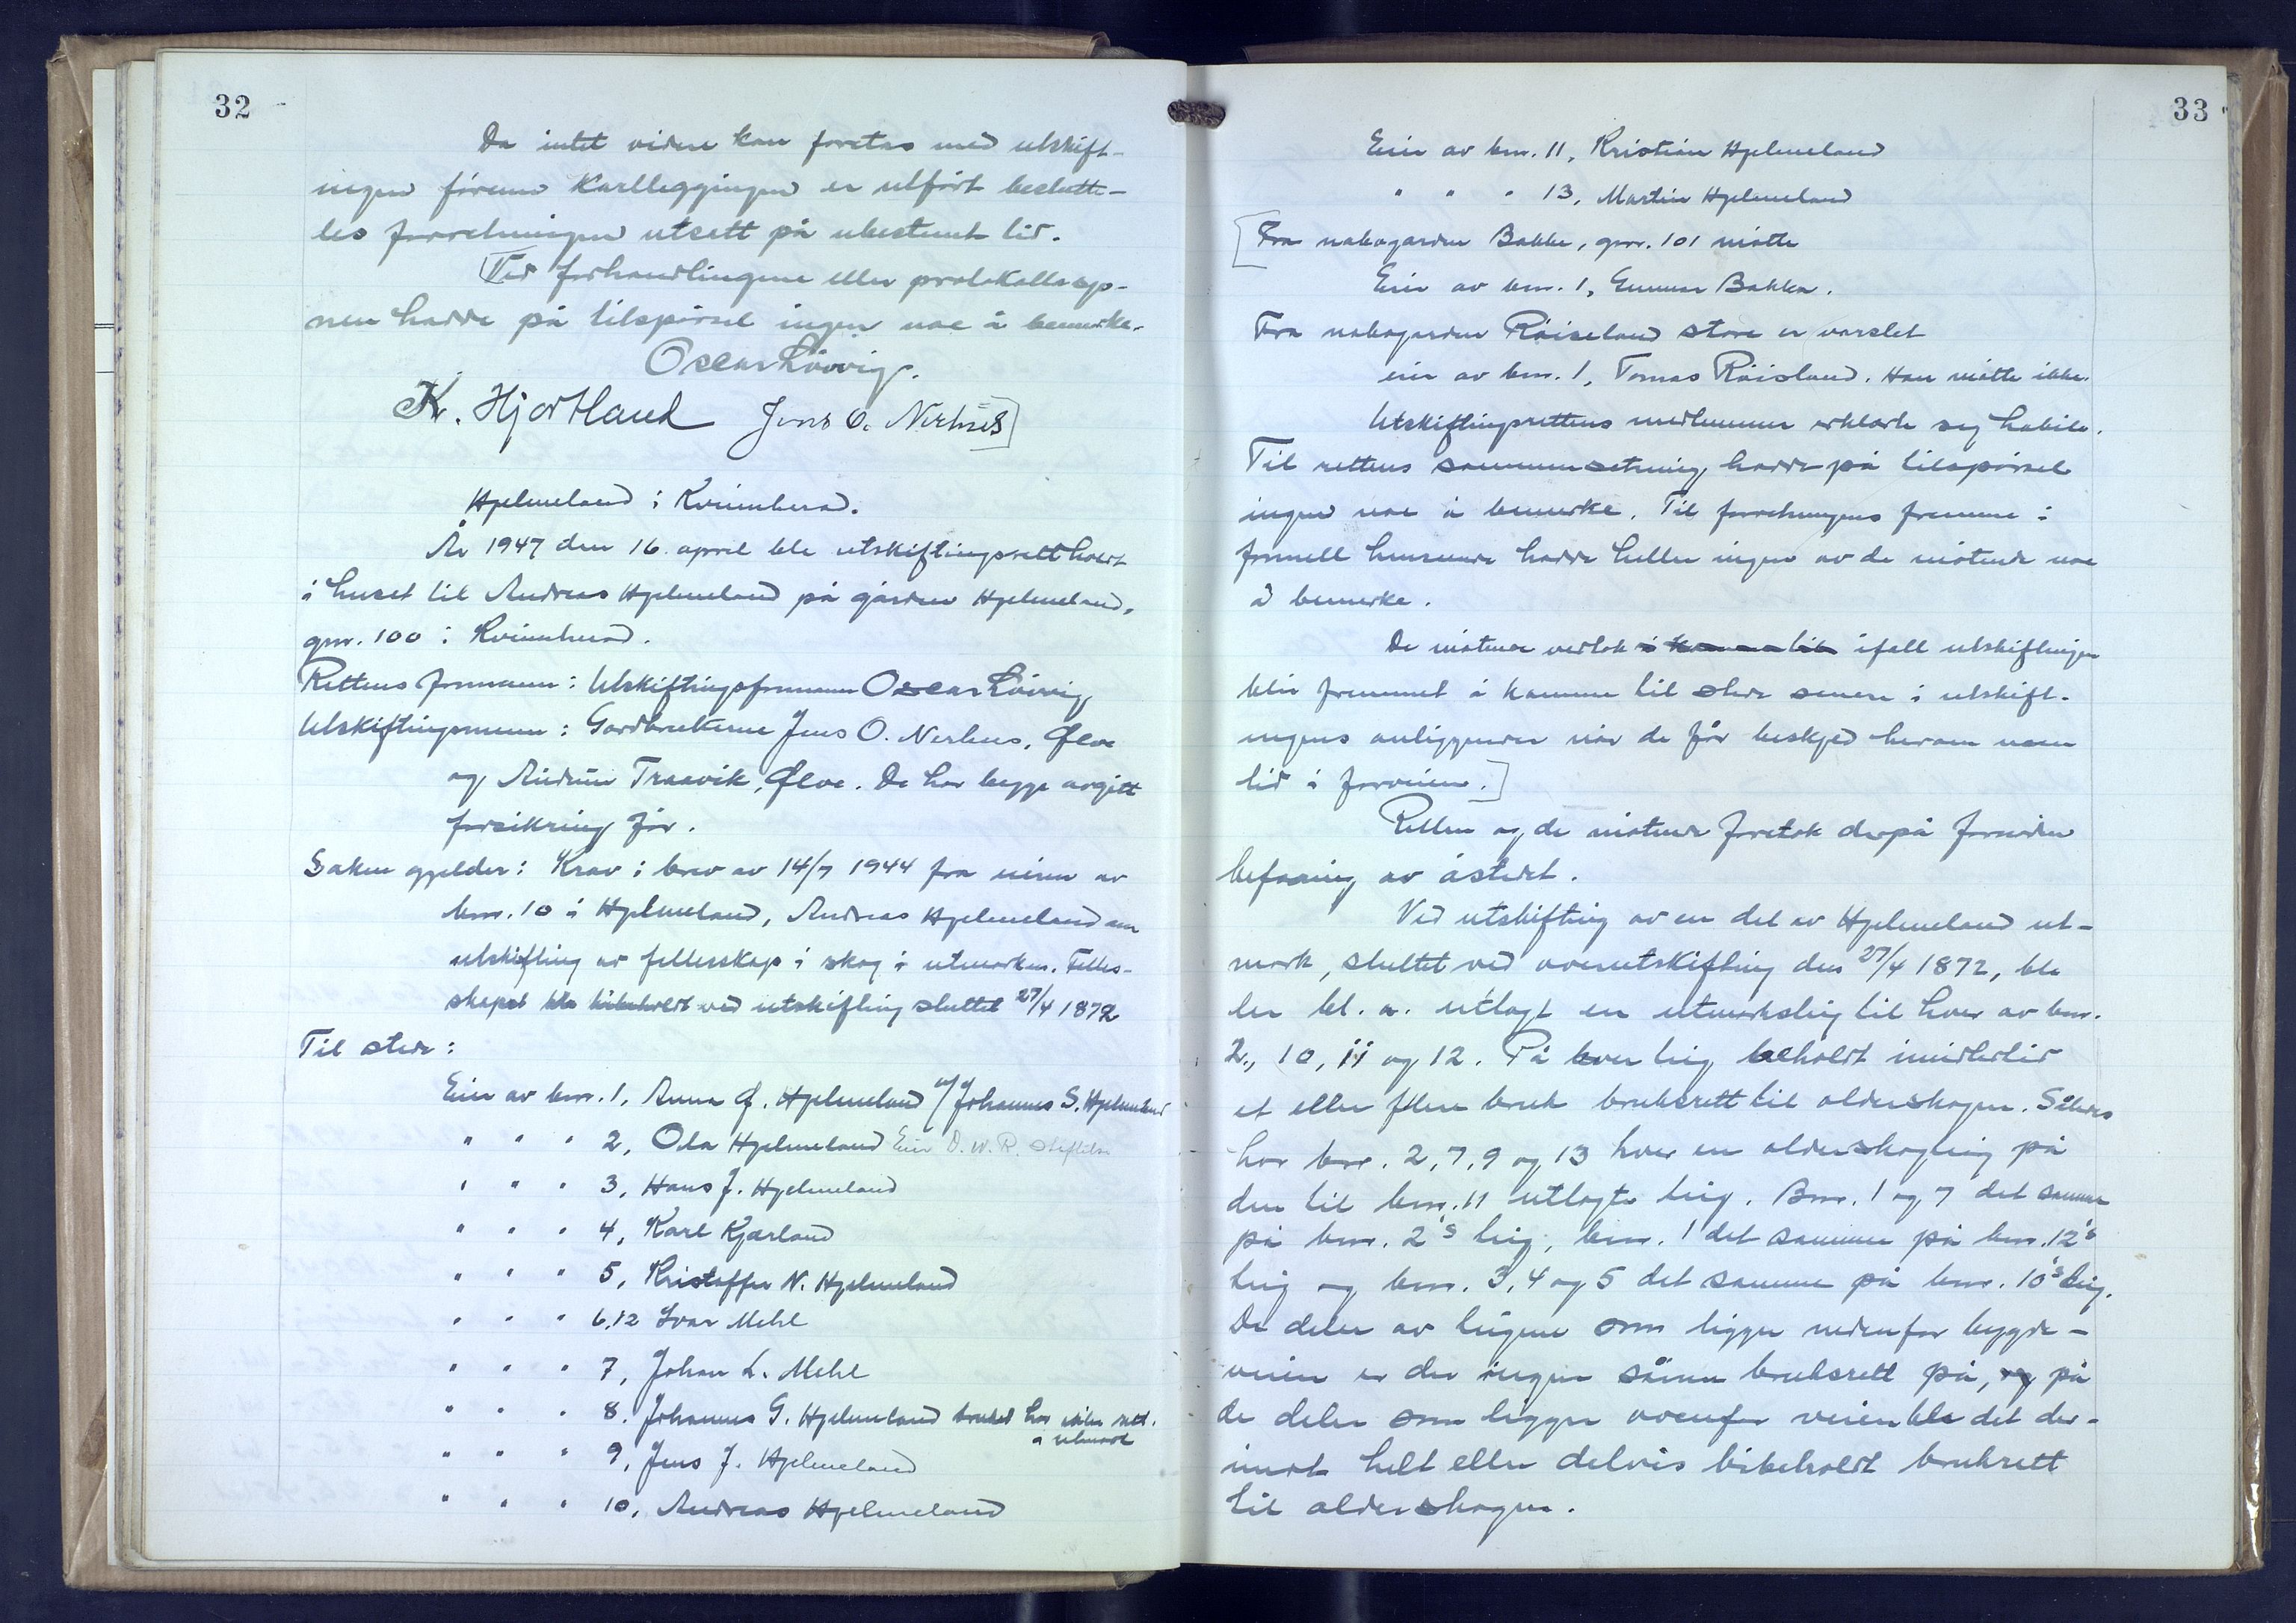 32
Da intet videre kan foretas med utskift-
ingen førenn Kartleggingen er utført beslutte-
tes forretningen utsett på ubestemt tid.
Ved forhandlingene eller protokollasjo-
nen hadde på tilspørsel ingen noe å bemerke.
Oscar Løvvig.
K. Hjortland Jens O. Nerhus]
Hjelmeland i Kvinnherad.
År 1947 den 16. april ble utskiftingsrett holdt
i huset til Andreas Hjelmeland på gården Hjelmeland,
gnr. 100 i Kvinnherad.
Rettens formann: Utskiftingsformann Oscar Løvvig
Utskiftingsmenn: Gardbrukerne Jens O. Nerhus, Ølve
og Andrew Traavik, Ølve. De har begge avgitt
forsikring før.
Saken gjelder: Krav i brev av 14/7 1944 fra eieren av
bnr. 10 i Hjelmeland, Andreas Hjelmeland om
utskifting av fellesskap i skog i utmarken. Felles-
skapet ble bibeholdt ved utskifting sluttet 27/4 1872
Til stede:
Eier av bnr. 1, Anna G. Hjelmeland v/ Johannes S. Hjelmeland
" " " 2, Ola Hjelmeland Eier O. W. R. stiftelse
" " " 3, Hans J. Hjelmeland
" " " 4, Karl Kjærland
" " " 5, Kristoffer N. Hjelmeland
" " " 6,12 Ivar Mehl
" " " 7, Johan L. Mehl
" " " 8. Johannes G. Hjelmeland bruket har ikke rett.
i utmark
" " " 9, Jens J. Hjelmeland
" " " 10, Andreas Hjelmeland
33
Eier av bnr. 11, Kristian Hjelmeland
" " " 13, Martin Hjelmeland
[Fra nabogarden Bakke, gnr. 101 møtte
Eier av bnr. 1, Gunnar Bakka.
Fra nabogarden Røiseland store er varslet
eier av bnr. 1, Tomas Røisland. Han møtte ikke.
Utskiftingsrettens medlemmer erklærte seg habile.
Til rettens sammensetning hadde på tilspørsel
ingen noe å bemerke. Til forretningens fremme i
formell henseende hadde heller ingen av de møtende noe
å bemerke.
De møtende vedtok ifall utskiftingen
blir fremmet å komme til stede senere i utskift-
ingens anliggender når de får beskjed herom noen
tid i forveien.]
Retten og de møtende foretok derpå fornøden
befaring av åstedet.
Ved utskifting av en del av Hjelmeland ut-
mark, sluttet ved overutskifting den 27/4 1872, ble
der bl. a. utlagt en utmarksteig til hver av bnr.
2, 10, 11 og 12. På hver teig beholdt imidlertid
et eller flere bruk bruksrett til olderskogen. Således
har bnr. 2, 7, 9 og 13 hver en olderskogteig på
den til bnr. 11 utlagte teig. Bnr. 1 og 7 det samme
på bnr. 2's teig, bnr. 1 det samme på bnr. 12's
teig og bnr. 3, 4 og 5 det samme på bnr. 10's teig.
De deler av teigene som ligger nedenfor bygde-
veien er der ingen sånn bruksrett på, og på
de deler som ligger ovenfor veien ble det der-
imot helt eller delvis bibeholdt bruksrett
til olderskogen.